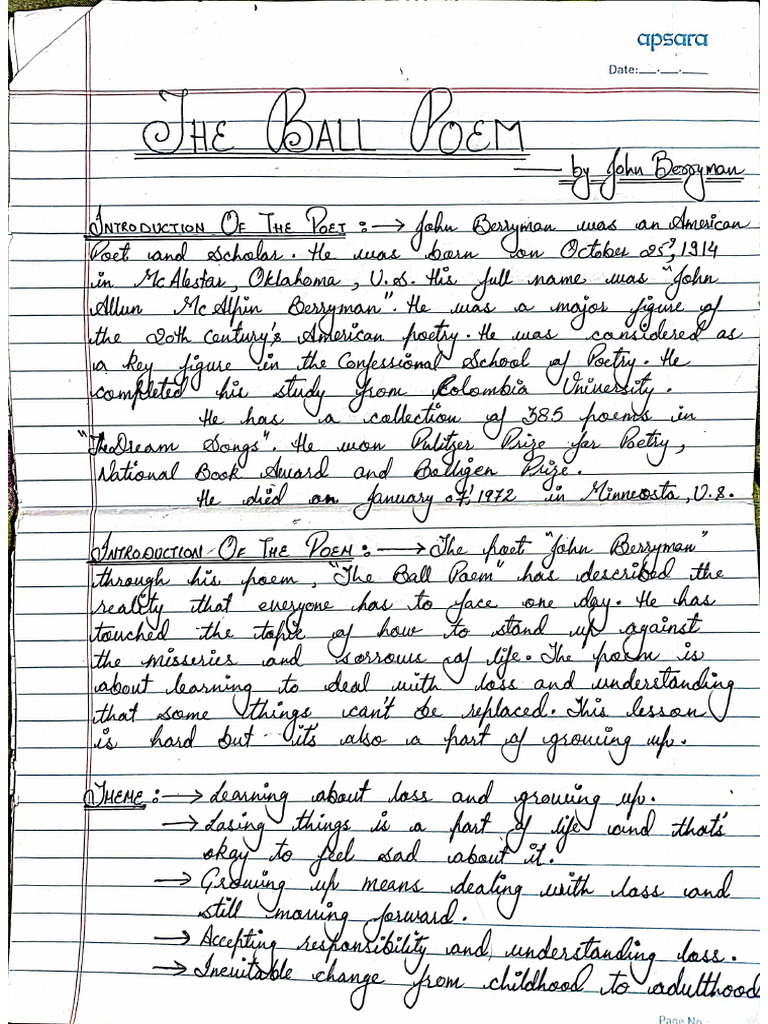 apsara
Date:__.__.____
THE BALL POEM
— by John Berryman
INTRODUCTION OF THE POET :→ John Berryman was an American
Poet and scholar. He was born on October 25, 1914
in McAlestar, Oklahoma, U.S. His full name was "John
Allun McAlpin Berryman". He was a major figure of
the 20th century's American poetry. He was considered as
a key figure in the Confessional School of Poetry. He
completed his study from Colombia University.
He has a collection of 385 poems in
"The Dream Songs". He won Pulitzer Prize for Poetry,
National Book Award and Bolligen Prize.
He died on January 07, 1972 in Minneosta, U.S.
INTRODUCTION OF THE POEM :→ The poet "John Berryman"
through his poem, "The Ball Poem" has described the
reality that everyone has to face one day. He has
touched the topic of how to stand up against
the misseries and sorrows of life. The poem is
about learning to deal with loss and understanding
that some things can't be replaced. This lesson
is hard but its also a part of growing up.
THEME :→ Learning about loss and growing up.
→ Losing things is a part of life and that's
okay to feel sad about it.
→ Growing up means dealing with loss and
still moving forward.
→ Accepting responsibility and understanding loss.
→ Inevitable change from childhood to adulthood
Page No.